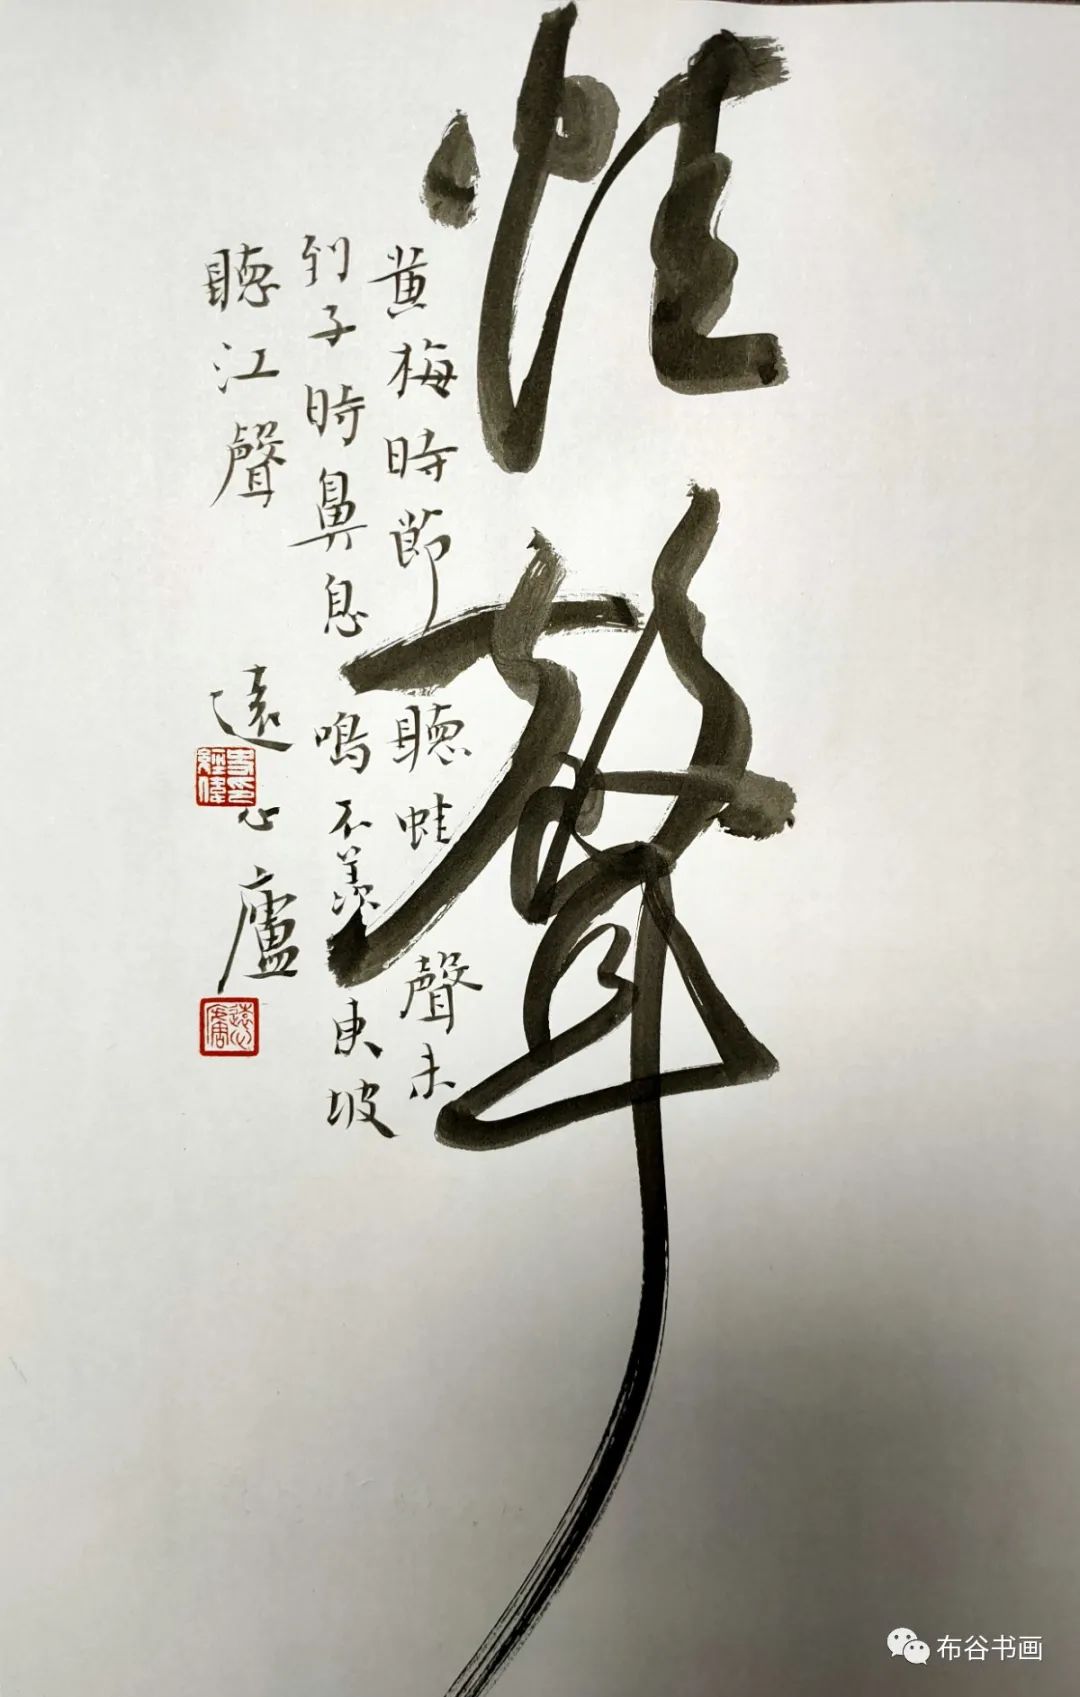 惟聲
黃梅時節聽蛙聲未
到子時鼻息鳴不羨東坡
聽江聲
遠心廬
布谷书画